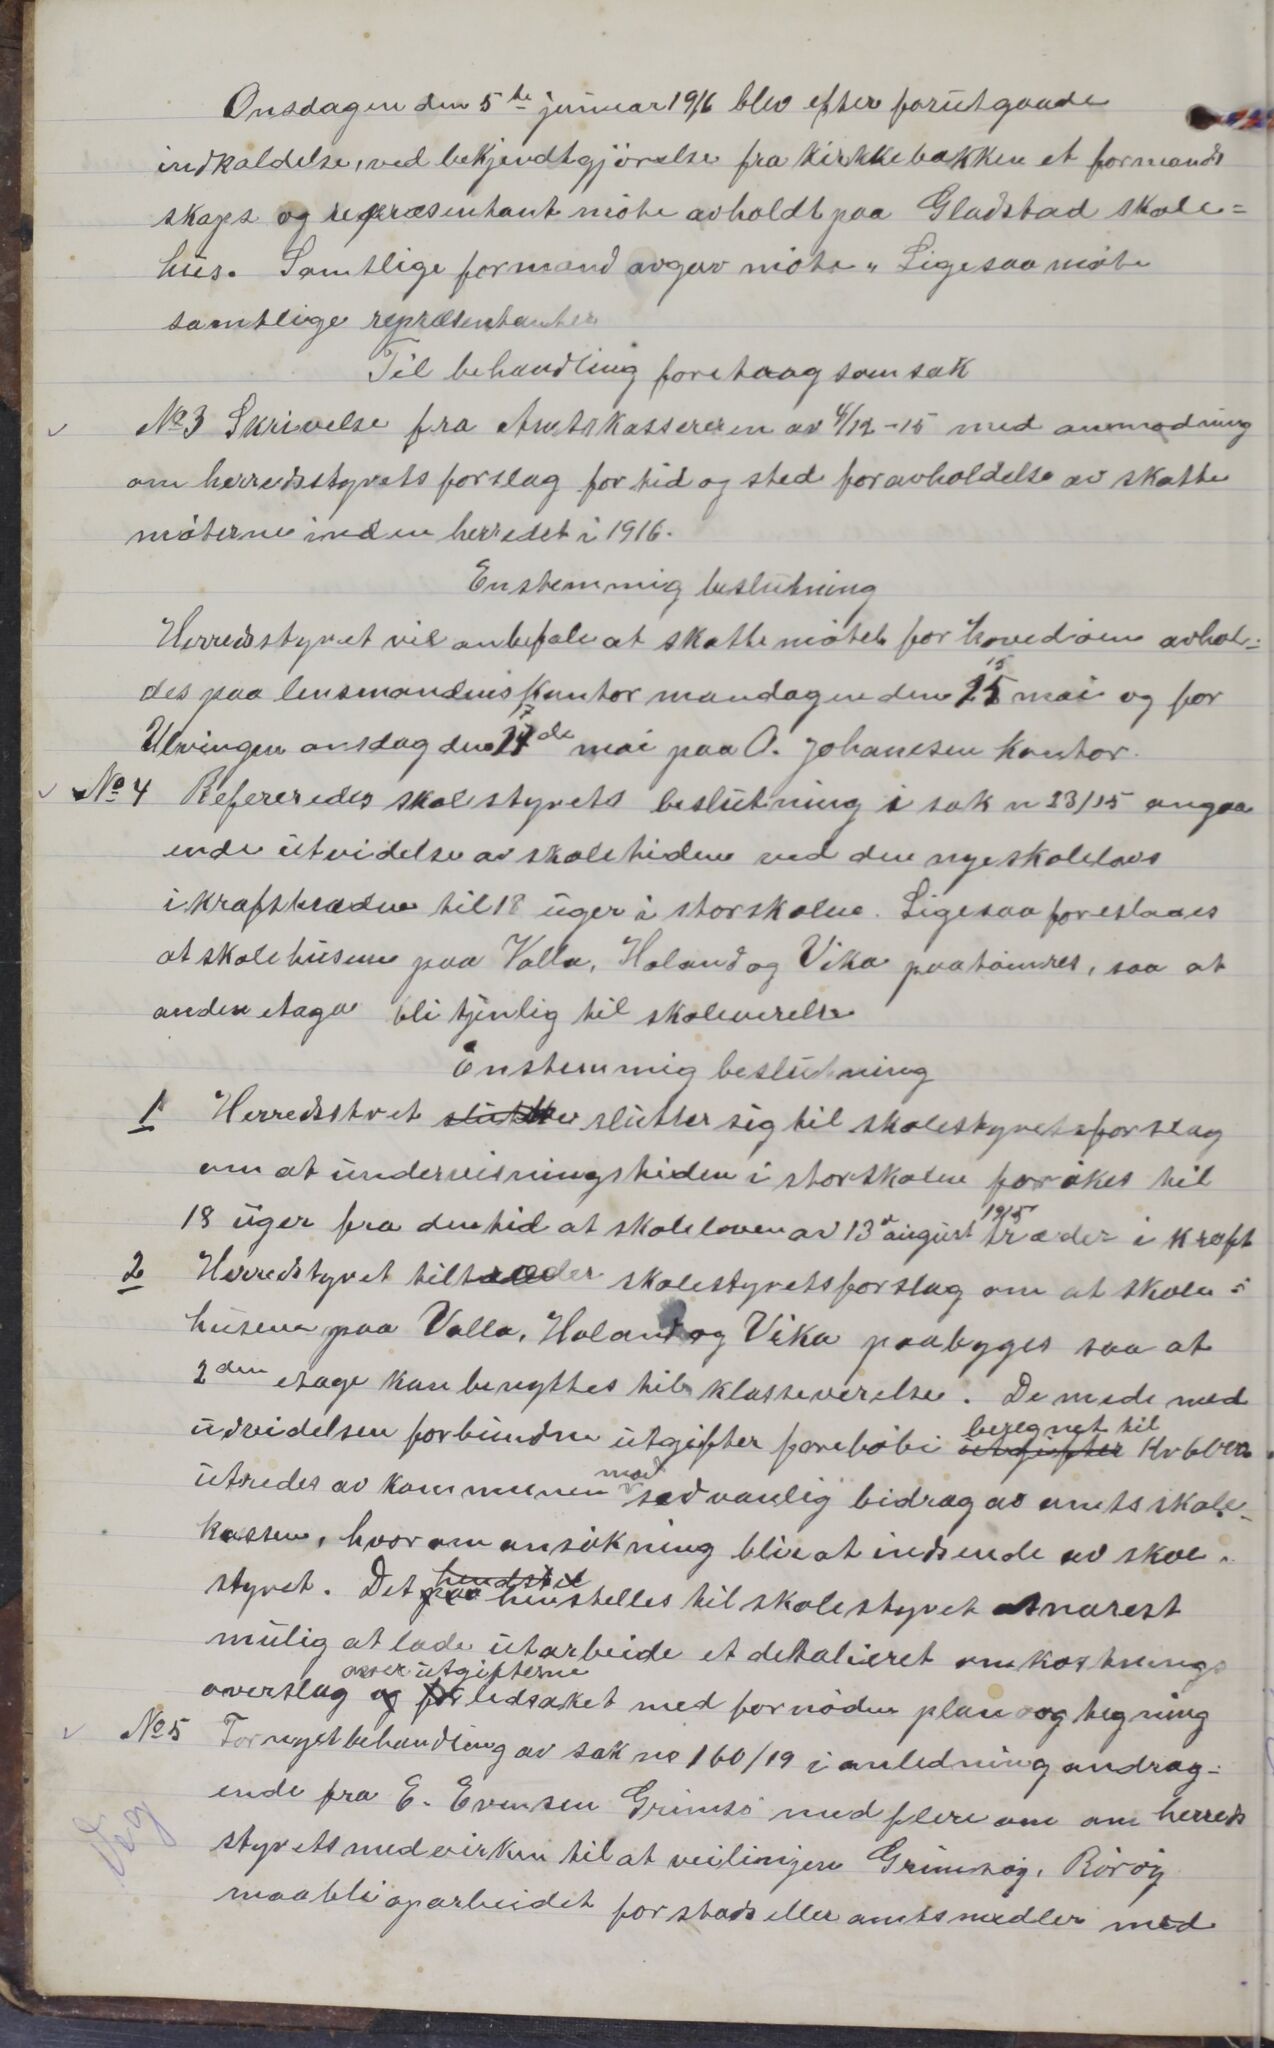 Onsdagen den 5te januar 1916 blev efter forutgaade
indkaldelse, ved bekjendtgjörelse fra kirkkebakken et formands
skaps og repræsentant möte avholdt paa Gladstad skole=
hus. Samtlige formænd avgav möte. Ligesaa möte
samtlige repræsentanter
Til behandling foretaag som sak
No 3 Skrivelse fra Amtskassereren av 4/12-15 med anmodning
om herredsstyrets forslag for tid og sted for avholdelse av skatte
möterne inden herredet i 1916.
Enstemmig beslutning
Herredsstyret vil anbefale at skattemötet for hovedöen avhol=
des paa lensmandens kontor mandagen den 15 mai og for
Ulvingen onsdag den 17de mai paa O. Johansen kontor.
No 4 Refereredes skolestyrets beslutning i sak n 23/15 angaa
ende utvidelse av skoletiden ved den nye skolelovs
ikrafttræden til 18 uger i storskolen. Ligesaa foreslaaes
at skolehusene paa Valla, Holand og Vika paatömres, saa at
anden etage bli tjenlig til skoleverelse
Enstemmig beslutning
1 Herredsstret slutter slutter sig til skolestyrets forslag
om at undervisningstiden i storskolen forökes til
18 uger fra den tid at skoleloven av 13de august 1915 træder i kraft
2 Herredstyret tiltræder skolestyrets forslag om at skole=
husene paa Valla, Holand og Vika paabygges saa at
2den etage kan benyttes til klasseverelse. De mede med
udvidelsen forbundne utgifter forelöbi beregnet til utgifter Kr
utredes av kommunen mod sedvanlig bidrag av amtsskole=
kassen, hvorom ansökning blir at indsende av skole.
styret. Det hendstil henstilles til skolestyret snarest
mulig at lade utarbeide et detalieret omkostnings
overslag over utgifterne og for ledsaket med fornöden plan og tegning
No 5 Fornyet behandling av sak no 160/19 i anledning andrag=
ende fra E. Evensen Grimsö med flere om om herreds
styrets medvirken til at veilinjen Grimsöy, Röröy
maa bli oparbeidet for stads eller amtsmedler med
Veg